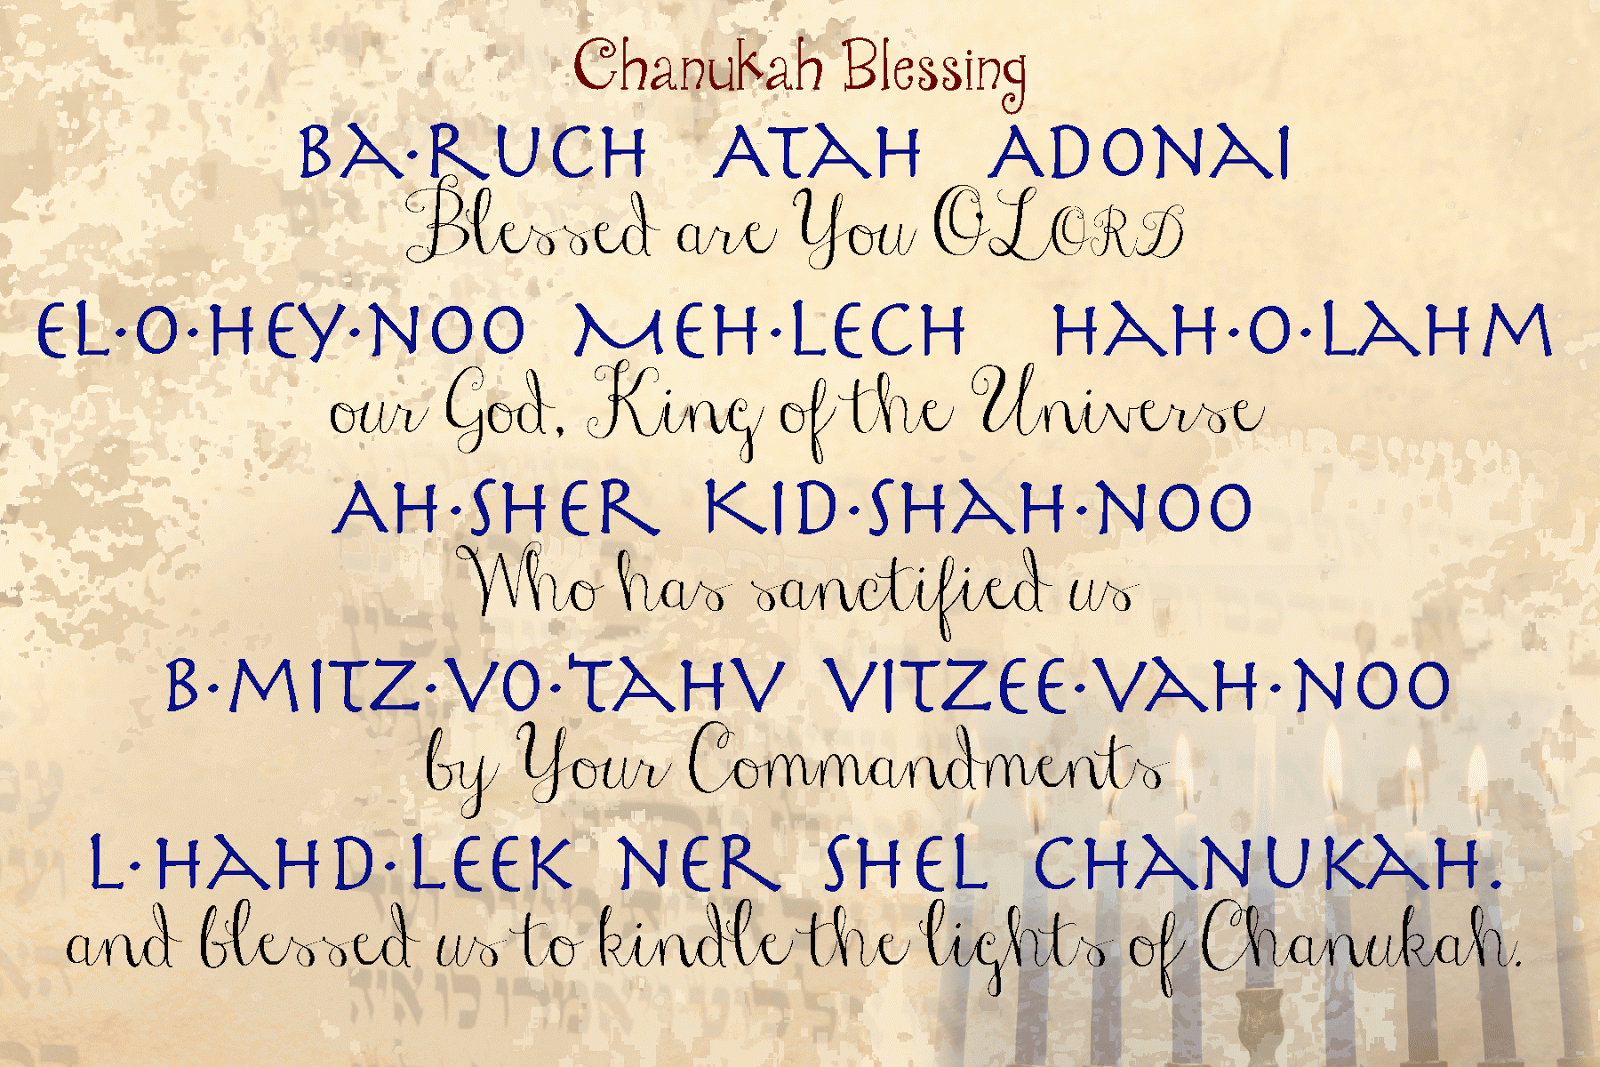 Chanukah Blessing
BA·RUCH ATAH ADONAI
Blessed are You O LORD
EL·O·HEY·NOO MEH·LECH HAH·O·LAHM
our God, King of the Universe
AH·SHER KID·SHAH·NOO
Who has sanctified us
B·MITZ·VO·TAHV VITZEE·VAH·NOO
by Your Commandments
L·HAHD·LEEK NER SHEL CHANUKAH.
and blessed us to kindle the lights of Chanukah.